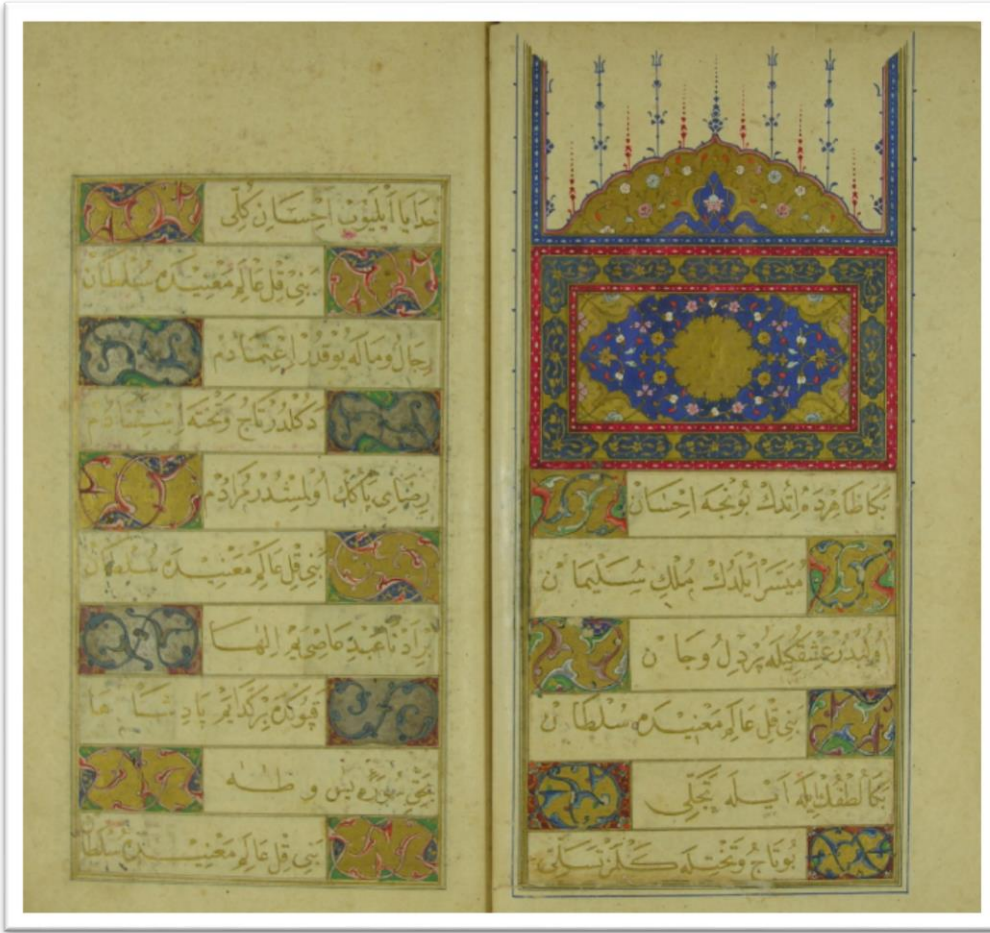 بكا ظاهرده اتدك بونجه احسان
ميسر ايلدك ملك سليمان
اولبدر عشقكله پر دل و جان
بنى قل عالم معنيده سلطان
بكا لطفك ايله ايله تجلى
بو تاج و تختله كلمز تسلى
خدايا ايليوب احسان كلى
بنى قل عالم معنيده سلطان
رجال و ماله يوقدر اعتمادم
دكلدر تاج و تخته استنادم
رضاى پاكك اولمشدر مرادم
بنى قل عالم معنيده سلطان
مراد ناعبد عاصى ير الها
قپوكده بر كدايم پادشاها
بحق سوره يس و طه
بنى قل عالم معنيده سلطان